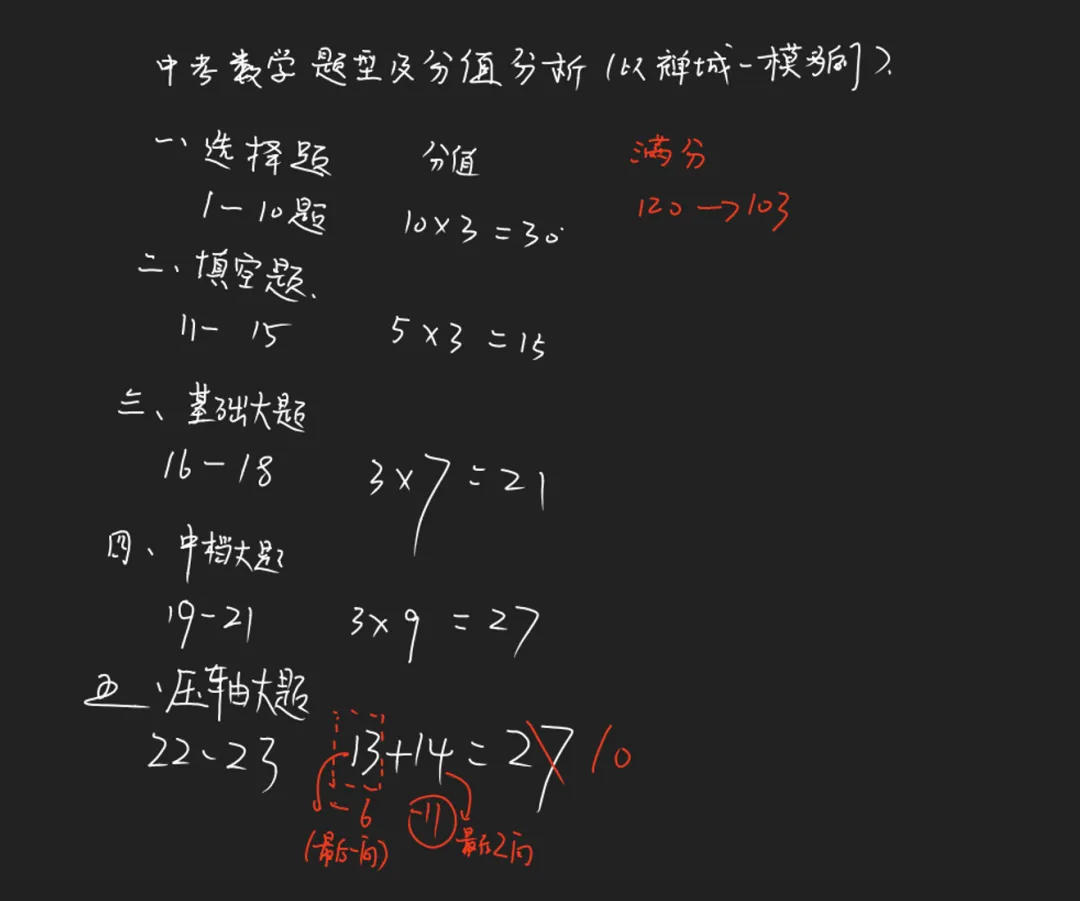 中考数学题型及分值分析(以禅城一模为例).
一、选择题 分值 满分
1-10题 10×3=30 120→103
二、填空题.
11-15 5×3=15
三、基础大题
16-18 3×7=21
四、中档大题
19-21 3×9=27
五、压轴大题
22、23 13+14=27 10
-6 -11 最后2问
(最后一问)